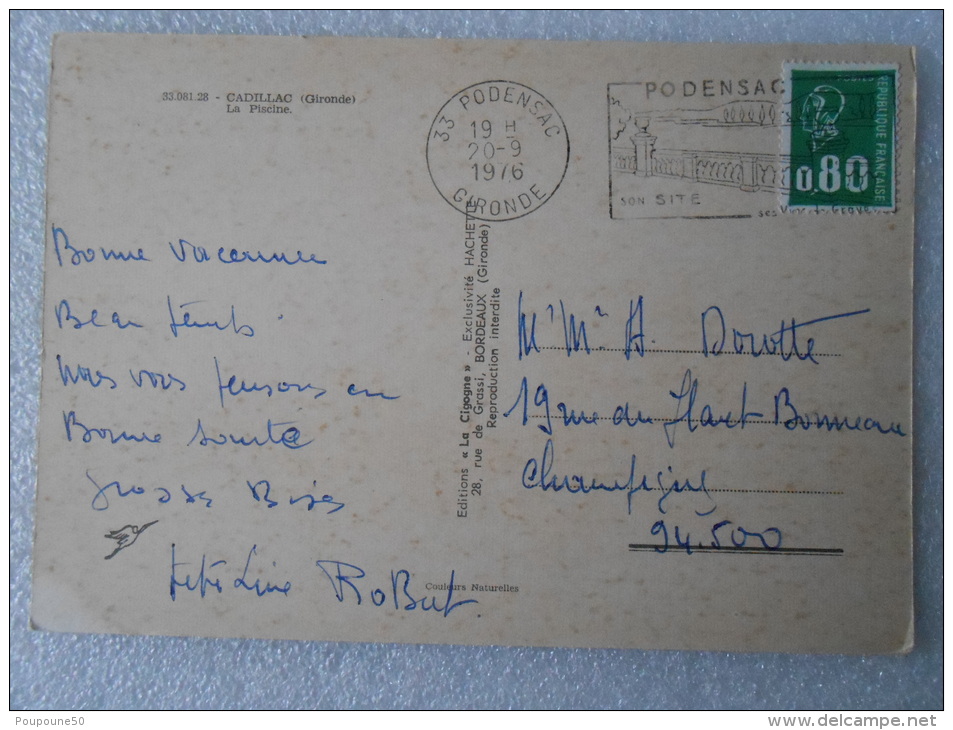 33.081.28 - CADILLAC (Gironde)
La Piscine.
33 PODENSAC
19 H
20-9
1976
GIRONDE
PODENSAC
SON SITE
SES
REPUBLIQUE FRANÇAISE
POSTES
0,80
Bonne vacances
Beau temps
nous vous pensons en
Bonne santé
grosses Bises
Line Robert
Editions « La Cigogne » - Exclusivité HACHETTE
28, rue de Grassi, BORDEAUX (Gironde)
Reproduction interdite
Couleurs Naturelles
Mr Mme H. Dorotte
19 rue du Haut Bonneau
Champigny
94.500
Poupoune50
www.delcampe.net